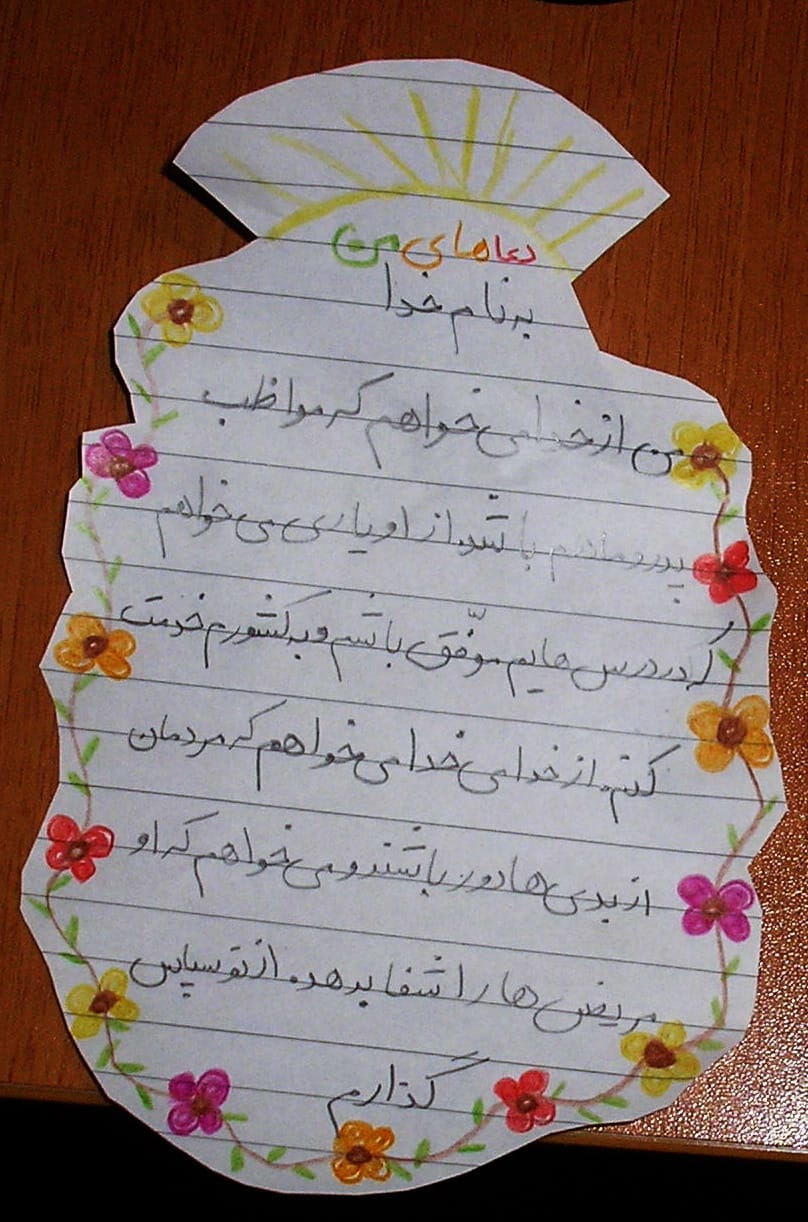 دعاهای من
به نام خدا
من از خدا می خواهم که مواظب
پدر و مادرم باشد. از او یاری می خواهم
که در درس هایم موفّق باشم و به کشورم خدمت
کنم. از خدا می خدا می خواهم که مردمان
از بدی ها دور باشند و می خواهم که او
مریض ها را شفا بدهد. از تو سپاس
گذارم